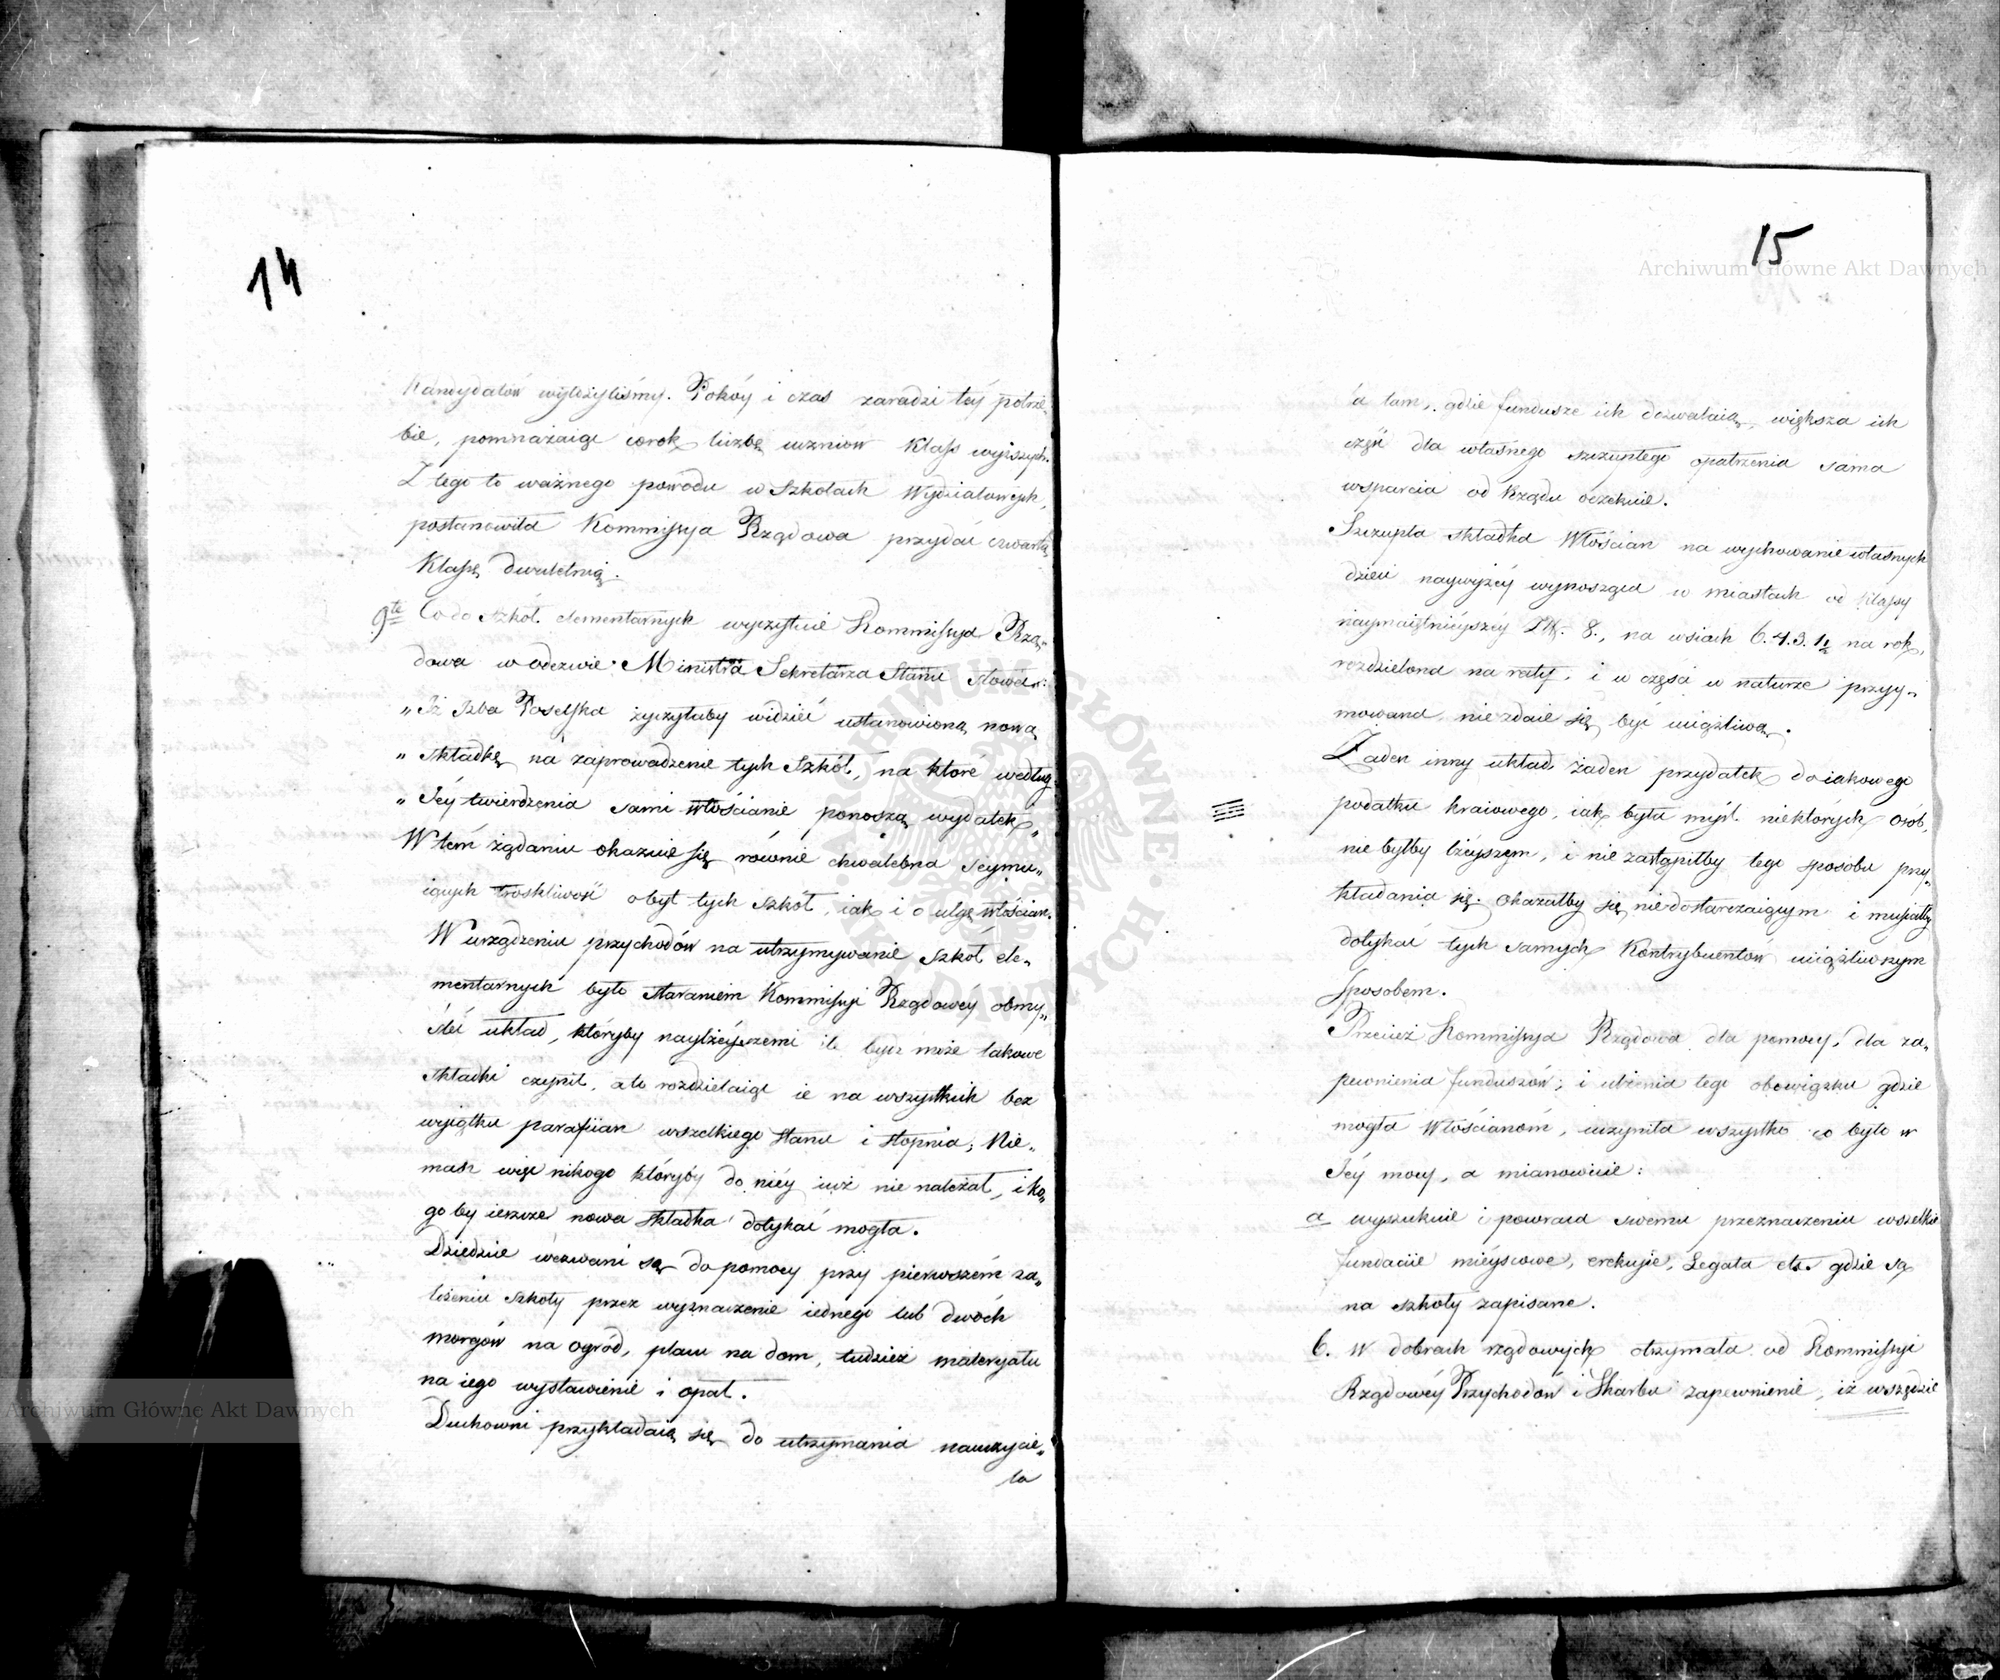 14
Kandydatów wyłożyliśmy. Pokóy i czas zaradzi téy potrze„
bie, pomnażaiąc corok liczbę uczniów Klass wyższych.
Z tego to ważnego powodu w Szkołach Wydziałowych,
postanowiła Kommissya Rządowa przydać czwartą
Klassę dwuletnią.
9te Co do szkół elementarnych wyczytuie Kommissya Rzą„
dowa w odezwie Ministra Sekretarza Stanu słowa:
„Iż Izba Poselska życzyłaby widzieć ustanowioną nową
„składkę na zaprowadzenie tych Szkół, na które według
„Jéy twierdzenia sami włościanie ponoszą wydatek„
W tém żądaniu okazuie się równie chwalebna Seymu„
iących troskliwość o byt tych szkół, iak i o ulgę włościan.
W urządzeniu przychodów na utrzymywanie szkół ele„
mentarnych było staraniem Kommissyi Rządowéy obmy„
śleć układ, któryby naylżéyszemi ile być może takowe
składki czynił, a to rozdzielaiąc ie na wszystkich bez
wyiątku parafiian wszelkiego stanu i stopnia; Nie„
masz więc nikogo któryby do niéy iuż nie należał, i ko„
goby ieszcze nowa składka dotykać mogła.
Dziedzice wezwani są do pomocy przy pierwszém za„
łożeniu szkoły przez wyznaczenie iednego lub dwóch
morgów na ogród, placu na dom, tudzież materyału
na iego wystawienie i opał.
Duchowni przykładaią się do utrzymania nauczycie„
la
15
a tam, gdzie fundusze ich dozwalaią, większa ich
część dla własnego szczupłego opatrzenia sama
wsparcia od Rządu oczekuie.
Szczupła składka Włościan na wychowanie własnych
dzieci naywyżéy wynosząca w miastach od klassy
naymaiętniéyszéy Zł. 8., na wsiach 6. 4. 3. 1½ na rok,
rozdzielona na raty, i w części w naturze przyy„
mowana, nie zdaie się być uciążliwą.
Żaden inny układ, żaden przydatek do iakowego
podatku kraiowego, iak była myśl niektórych osób,
nie byłby lżéyszym, i nie zastąpiłby tego sposobu przy„
kładania się. okazałby się niedostarczaiącym i musiałby
dotykać tych samych Kontrybuentów uciążliwszym
sposobem.
Przecież Kommissya Rządowa dla pomocy, dla za„
pewnienia funduszów, i ulżenia tego obowiązku gdzie
mogła Włościanom, uczyniła wszystko co było w
Jéy mocy, a mianowicie:
a wyszukuie i powraca swemu przeznaczeniu wszelkie
fundacie mieyscowe, erekcyie, Legata etc. gdzie są
na szkoły zapisane.
b. w dobrach rządowych otrzymała od Kommissyi
Rządowéy Przychodów i Skarbu zapewnienie, iż wszędzie
Archiwum Główne Akt Dawnych
Archiwum Główne Akt Dawnych
ARCHIWUM GŁÓWNE AKT DAWNYCH